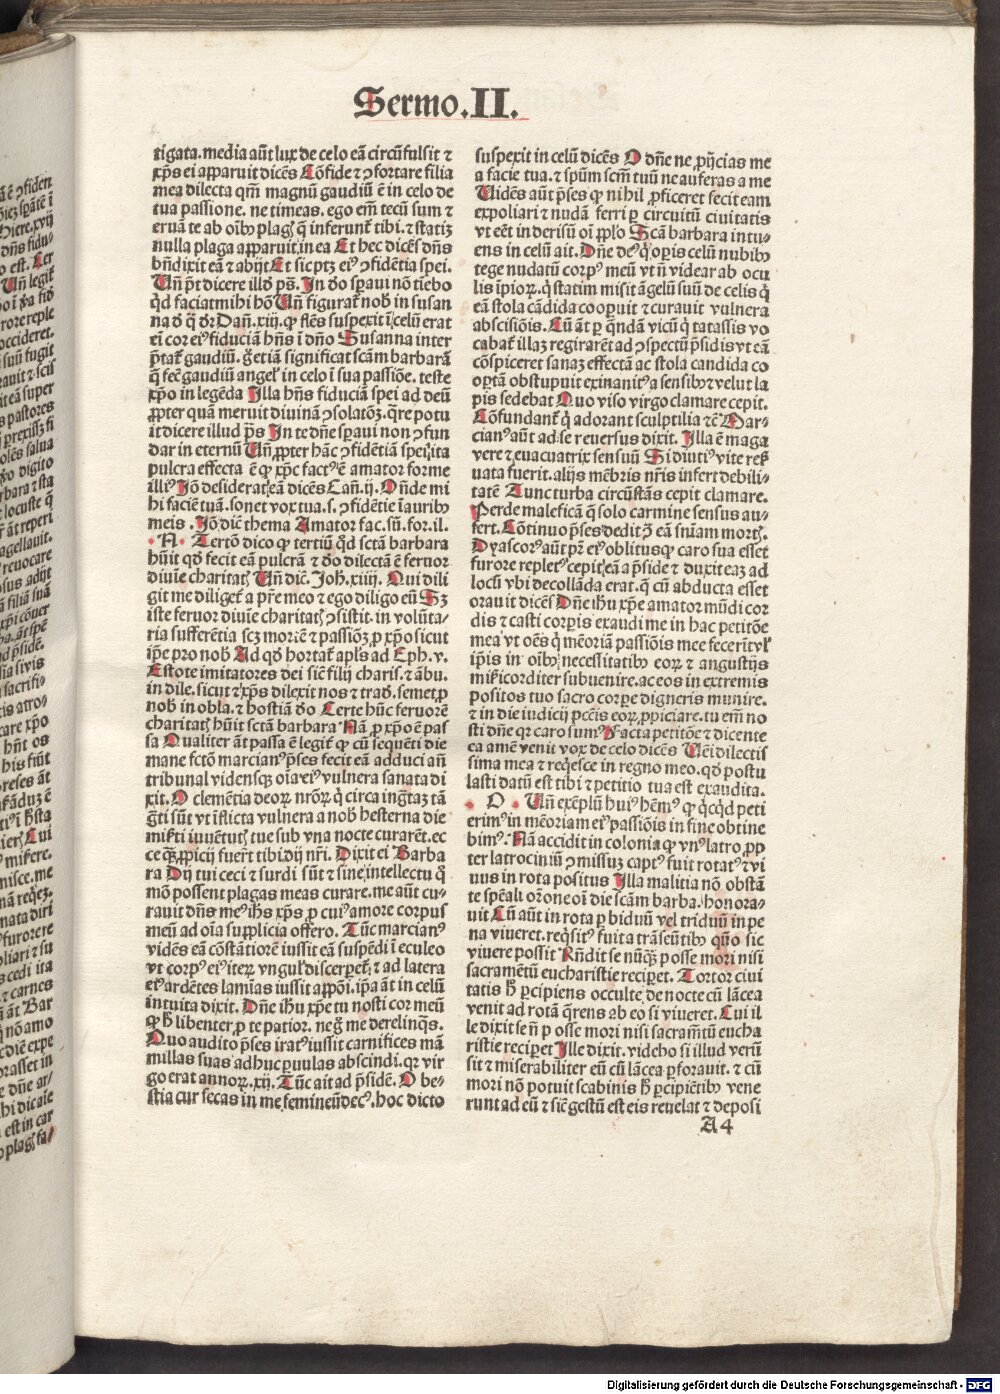 Sermo.II.
tigata. media aūt lux de celo eā circūfulsit ⁊
xp̄s ei apparuit dicēs Cōfide ⁊ ↄfortare filia
mea dilecta qm̄ magnū gaudiū ē in celo de
tua passione. ne timeas. ego em̄ tecū sum ⁊
eruā te ab oībꝰ plagꝭ q̄ inferunt̄ tibi. ⁊ statiꝫ
nulla plaga apparuit in ea Et hec dicēs dn̄s
bn̄dixit eā ⁊ abijt Et sic ptꝫ eiꝰ ↄfidētia spei.
Un̄ p̄t dicere illd̓ ps̄. In dn̄o speraui nō tiebo
qd̓ faciat mihi hō Un̄ figurat̄ nob̓ in susan
na d̓ q̄ dr̄ Dan̄. xiij. ꝙ flēs suspexit ī celū erat
ei cor eiꝰ fiduciā hn̄s ī dn̄o Susanna inter
p̄tat̄ gaudiū. ꝗ̄ etiā significat scām barbarā
q̄ fec̄ gaudiū angel̓ in celo ī sua passiōe. teste
xp̄o in legēda Illa hn̄s fiduciā spei ad deū
ꝓpter quā meruit diuinā ↄsolatōꝫ. q̄re potu
it dicere illud ps̄ In te dn̄e speraui non ↄfun
dar in eternū Un̄ ꝓpter hāc ↄfidētiā spei ita
pulcra effecta ē ꝙ xp̄c factꝰ ē amator forme
illiꝰ Jō desiderat eā dicēs Can̄. ij. On̄de mi
hi faciē tuā. sonet vox tua. s. ↄfidētie ī auribꝰ
meis. Jō dic̄ thema Amator fac. sū. for. il.
N. Tertō dico ꝙ tertiū qd̓ sctā barbara
hūit qd̓ fecit eā pulcrā ⁊ d̓o dilectā ē feruor
diuīe charitatꝭ Un̄ dic̄. Joh̄. xiiij. Qui dili
git me diliget̄ a p̄re meo ⁊ ego diligo eū Sꝫ
iste feruor diuīe charitatꝭ ↄsistit. in volūta-
ria sufferētia scꝫ moriē ⁊ passiōꝫ ꝓ xp̄o sicut
ip̄e pro nob̓ Ad qd̓ hortat̄ apl̓s ad Eph. v.
Estote imitatores dei sic̄ filij charis. ⁊ ābu.
in dile. sicut ⁊ xp̄s dilexit nos ⁊ trad̓. semet ꝓ
nob̓ in obla. ⁊ hostiā d̓o Certe hūc feruorē
charitatꝭ hūit sctā barbara Nā ꝓ xp̄o ē pas
sa Qualiter āt passa ē legit̄ ꝙ cū sequēti die
mane fctō marcianꝰ p̄ses fecit eā adduci an̄
tribunal vidensqꝫ oīa eiꝰ vulnera sanata di
xit. O clemētia deoꝝ nr̄oꝝ q̄ circa ingr̄aꝫ tā
gr̄ti sūt vt īflicta vulnera a nob̓ hesterna die
mir̄ti iuuētutꝭ tue sub vna nocte curarēt. ec
ce qꝫ ꝓpicij fuer̄t tibi dij nr̄i. Dixit ei Barba
ra Dij tui ceci ⁊ surdi sūt ⁊ sine intellectu q̄
mō possent plagas meas curare. me aūt cu-
rauit dn̄s meꝰ ih̄s xp̄s ꝓ cuiꝰ amore corpus
meū ad oīa supplicia offero. Tūc marcianꝰ
vidēs eā cōstātiorē iussit eā suspēdi ī eculeo
vt corpꝰ eiꝰ iteꝝ vngul̓ discerper̄et ⁊ ad latera
eiꝰ ardētes lamias iussit appōi. ip̄a āt in celū
intuita dixit. Dn̄e ih̄u xp̄e tu nosti cor meū
ꝙ h̓ libenter ꝓ te patior. neꝗ̄ me derelinq̄s.
Quo audito p̄ses iratꝰ iussit carnifices mā
millas suas adhuc ꝑuulas abscindi. qꝛ vir
go erat annoꝝ. xij. Tūc ait ad p̄sidē. O be-
stia cur secas in me femineū decꝰ. hoc dicto
suspexit in celū dicēs O dn̄e ne ꝓijcias me
a facie tua. ⁊ spūm scm̄ tuū ne auferas a me
Uidēs aūt p̄ses ꝙ nihil ꝓficeret fecit eam
expoliari ⁊ nudā ferri ꝑ circuitū ciuitatis
vt eēt in derisū oī ppl̓o Scā barbara intu-
ens in celū ait. Dn̄e deꝰ q̄ oꝑis celū nubibꝰ
tege nudatū corpꝰ meū vt n̄ videar ab ocu
lis ipīoꝝ. q̄ statim misit āgelū suū de celis q̄
eā stola cādida cooꝑuit ⁊ curauit vulnera
abscisiōis. Cū āt ꝑ q̄ndā vicū q̄ tatassis vo
cabat̄ illaꝫ regirarēt ad ↄspectū p̄sidis vt eā
cōspiceret sanaꝫ effectā ac stola candida co
oꝑtā obstupuit exinanitꝰ a sensibꝰ ⁊ velut la
pis sedebat Quo viso virgo clamare cepit.
Cōfundant̄ q̄ adorant sculptilia ⁊c̄ Mar-
cianꝰ aūt ad se reuersus dixit. Illa ē maga
vere ⁊ euacuatrix sensuū Si diutiꝰ vite reẜ
uata fuerit. alijs mēbris nr̄is infert debili-
tatē Tunc turba circūstās cepit clamare.
Perde maleficā q̄ solo carmine sensus au-
fert. Cōtinuo p̄ses dedit ↄ̄ eā sn̄iam mortꝭ.
Dyascorꝰ aūt pr̄ eiꝰ oblitusqꝫ caro sua esset
furore repletꝰ cepit eā a p̄side ⁊ duxit eaꝫ ad
locū vbi decollāda erat. q̄ cū abducta esset
orauit dicēs Dn̄e ih̄u xp̄e amator mūdi cor
dis ⁊ casti corꝑis exaudi me in hac petitōe
mea vt oēs q̄ mēoriā passiōis mee fecerīt vl̓
ip̄is in oībꝰ necessitatibꝰ eoꝝ ⁊ angustijs
mīcorditer subuenire. ac eos in extremis
positos tuo sacro corꝑe digneris munire.
⁊ in die iudicij pc̄cis eoꝝ ꝓpiciare. tu em̄ no
sti dn̄e qꝛ caro sumꝰ Facta petitōe ⁊ dicente
ea amē venit vox de celo dicēs Ueni dilectis
sima mea ⁊ req̄esce in regno meo. qd̓ postu
lasti datū est tibi ⁊ petitio tua est exaudita.
O. Un̄ exēplū huiꝰ hēmꝰ ꝙ qc̄qd̓ peti
erimꝰ in mēoriam eiꝰ passiōis in fine obtine
bimꝰ. Nā accidit in colonia ꝙ vnꝰ latro ꝓp
ter latrociniū ↄmissuꝫ captꝰ fuit rotatꝰ ⁊ vi
uus in rota positus Illa malitia nō obstā
te spēali or̄one oī die scām barba. honora-
uit Cū aūt in rota ꝑ biduū vel triduū in pe
na viueret. req̄sitꝰ fuit a trāseūtibꝰ quō sic
viuere possit Rn̄dit se nūqꝫ posse mori nisi
sacramētū eucharistie reciꝑet. Tortor ciui
tatis h̓ ꝑcipiens occulte de nocte cū lācea
venit ad rotā q̄rens ab eo si viueret. Cui il
le dixit se n̄ posse mori nisi sacram̄tū eucha
ristie reciꝑet Ille dixit. videbo si illud verū
sit ⁊ miserabiliter eū cū lācea ꝑforauit. ⁊ cū
mori nōn potuit scabinis h̓ ꝑcipiētibꝰ vene
runt ad eū ⁊ sic̄ gestū est eis reuelat ⁊ deposi
A4
Digitalisierung gefördert durch die Deutsche Forschungsgemeinschaft - DFG